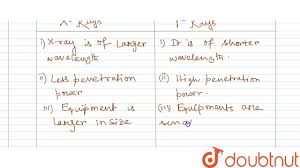 X-Rays
γ-Rays
i) X-ray is of Larger
wavelength
i) It is of shorter
wavelength.
ii) Less penetration
power
ii) High penetration
power.
(iii) Equipment is
larger in size
(iii) Equipments are
doubtnut